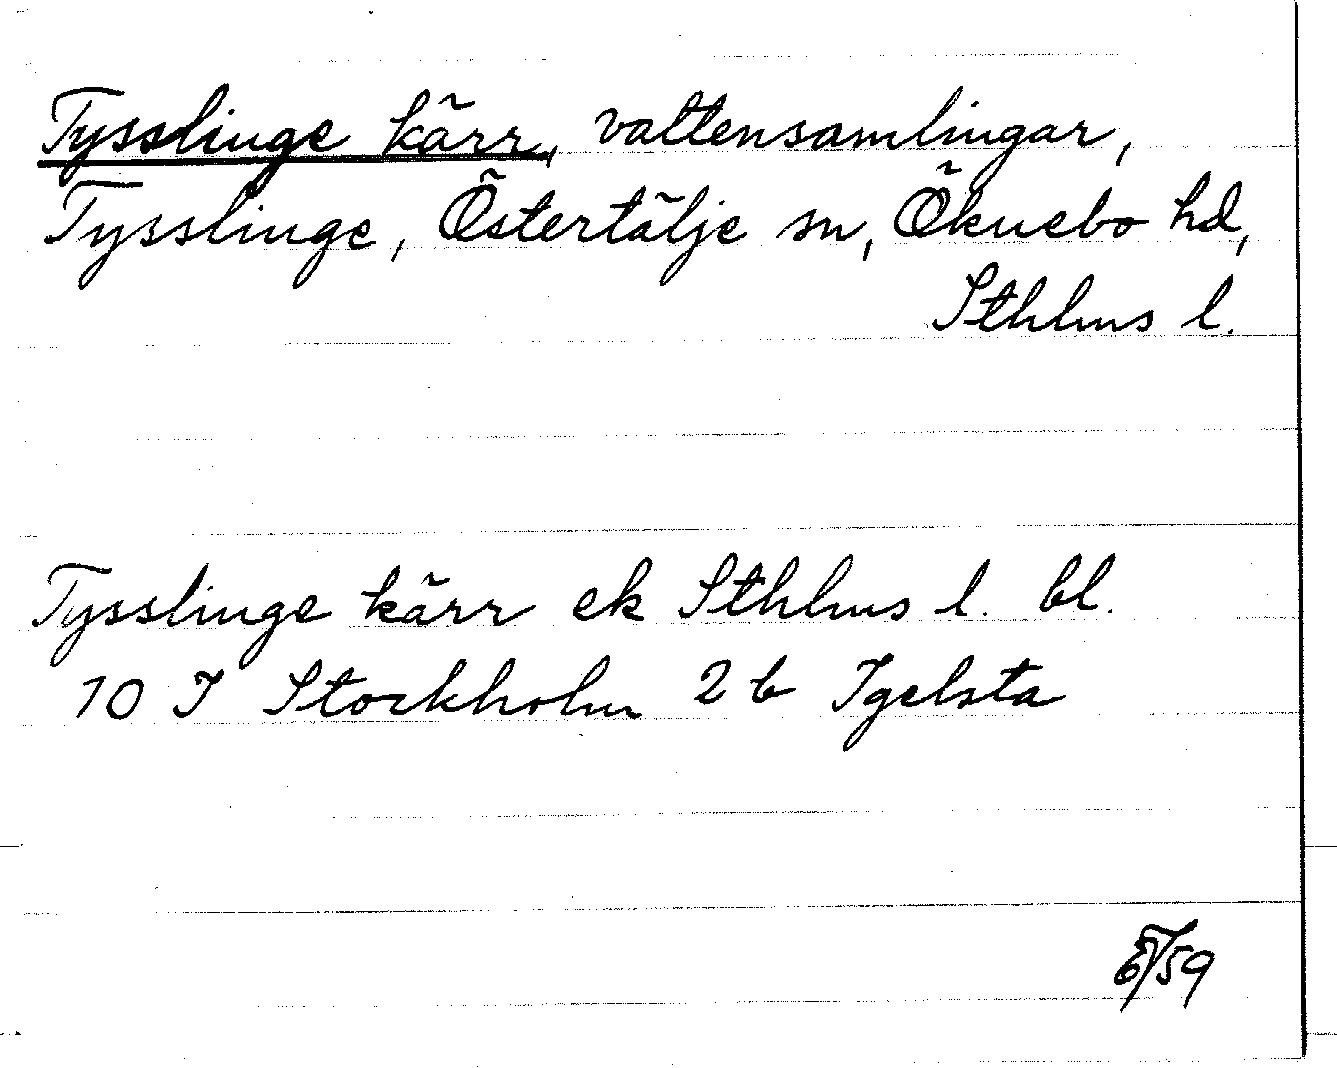 Tysslinge kärr, vattensamlingar,
Tysslinge, Östertälje sn, Öknebo hd,
Sthlms l.
Tysslinge kärr ek Sthlms l. bl.
10 I Stockholm 2 b Igelsta
/59